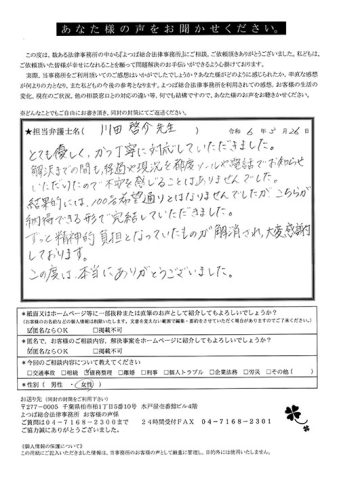 あなた様の声をお聞かせください。
この度は、数ある法律事務所の中から『よつば総合法律事務所』にご相談、ご依頼頂きありがとうございました。私どもは、
ご依頼頂いた皆様が幸せになれることを願って問題解決のお手伝いができるよう心掛けております。
実際、当事務所をご利用頂いてのご感想はいかがでしたでしょうか？あなた様がどのように感じられたか、率直な感想
が何よりの力となり、また私どもの今後の参考となります。よつば総合法律事務所を利用されての感想、お客様の生活の
変化、現在のご状況、他の相談窓口との対応の違い等、何でも結構ですので、あなた様の声をお聞かせください。
※どんなことでもご自由にお書き頂き、同封の封筒にてご返送ください。
★担当弁護士名（ 川田啓介先生 ） 令和 6年 3月26日
とても優しく、かつ丁寧に対応していただきました。
解決までの間も、経過や現況を都度メールや電話でお知らせ
いただいたので不安を感じることはありませんでした。
結果的には、100%希望通りとはなりませんでしたが、こちらが
納得できる形で完結していただきました。
ずっと精神的負担となっていたものが解消され、大変感謝
しております。
この度は、本当にありがとうございました。
★紙面又はホームページ等に一部抜粋または直筆のお声として紹介してもよろしいでしょうか？
☑匿名ならOK □掲載不可
★匿名で、お客様のご相談内容、解決事案をホームページに紹介してもよろしいでしょうか？
☑匿名ならOK □掲載不可
★今回のご相談内容について教えてください
□交通事故 □相続 ☑債務整理 □離婚 □刑事 □個人トラブル □企業法務 □労災 □その他（ ）
★性別（ 男性 ・ 女性 ）
お送り先（同封の封筒をご利用下さい）
〒277-0005 千葉県柏市柏1丁目5番10号 水戸屋壱番館ビル4階
よつば総合法律事務所 お客様の声係
ご質問は04-7168-2300まで 24時間受付FAX 04-7168-2301
ご協力誠にありがとうございました。
《個人情報の保護について》
この用紙にご記入いただきました情報は、当事務所のお客様の声として厳重に管理し、目的外には使用いたしません。